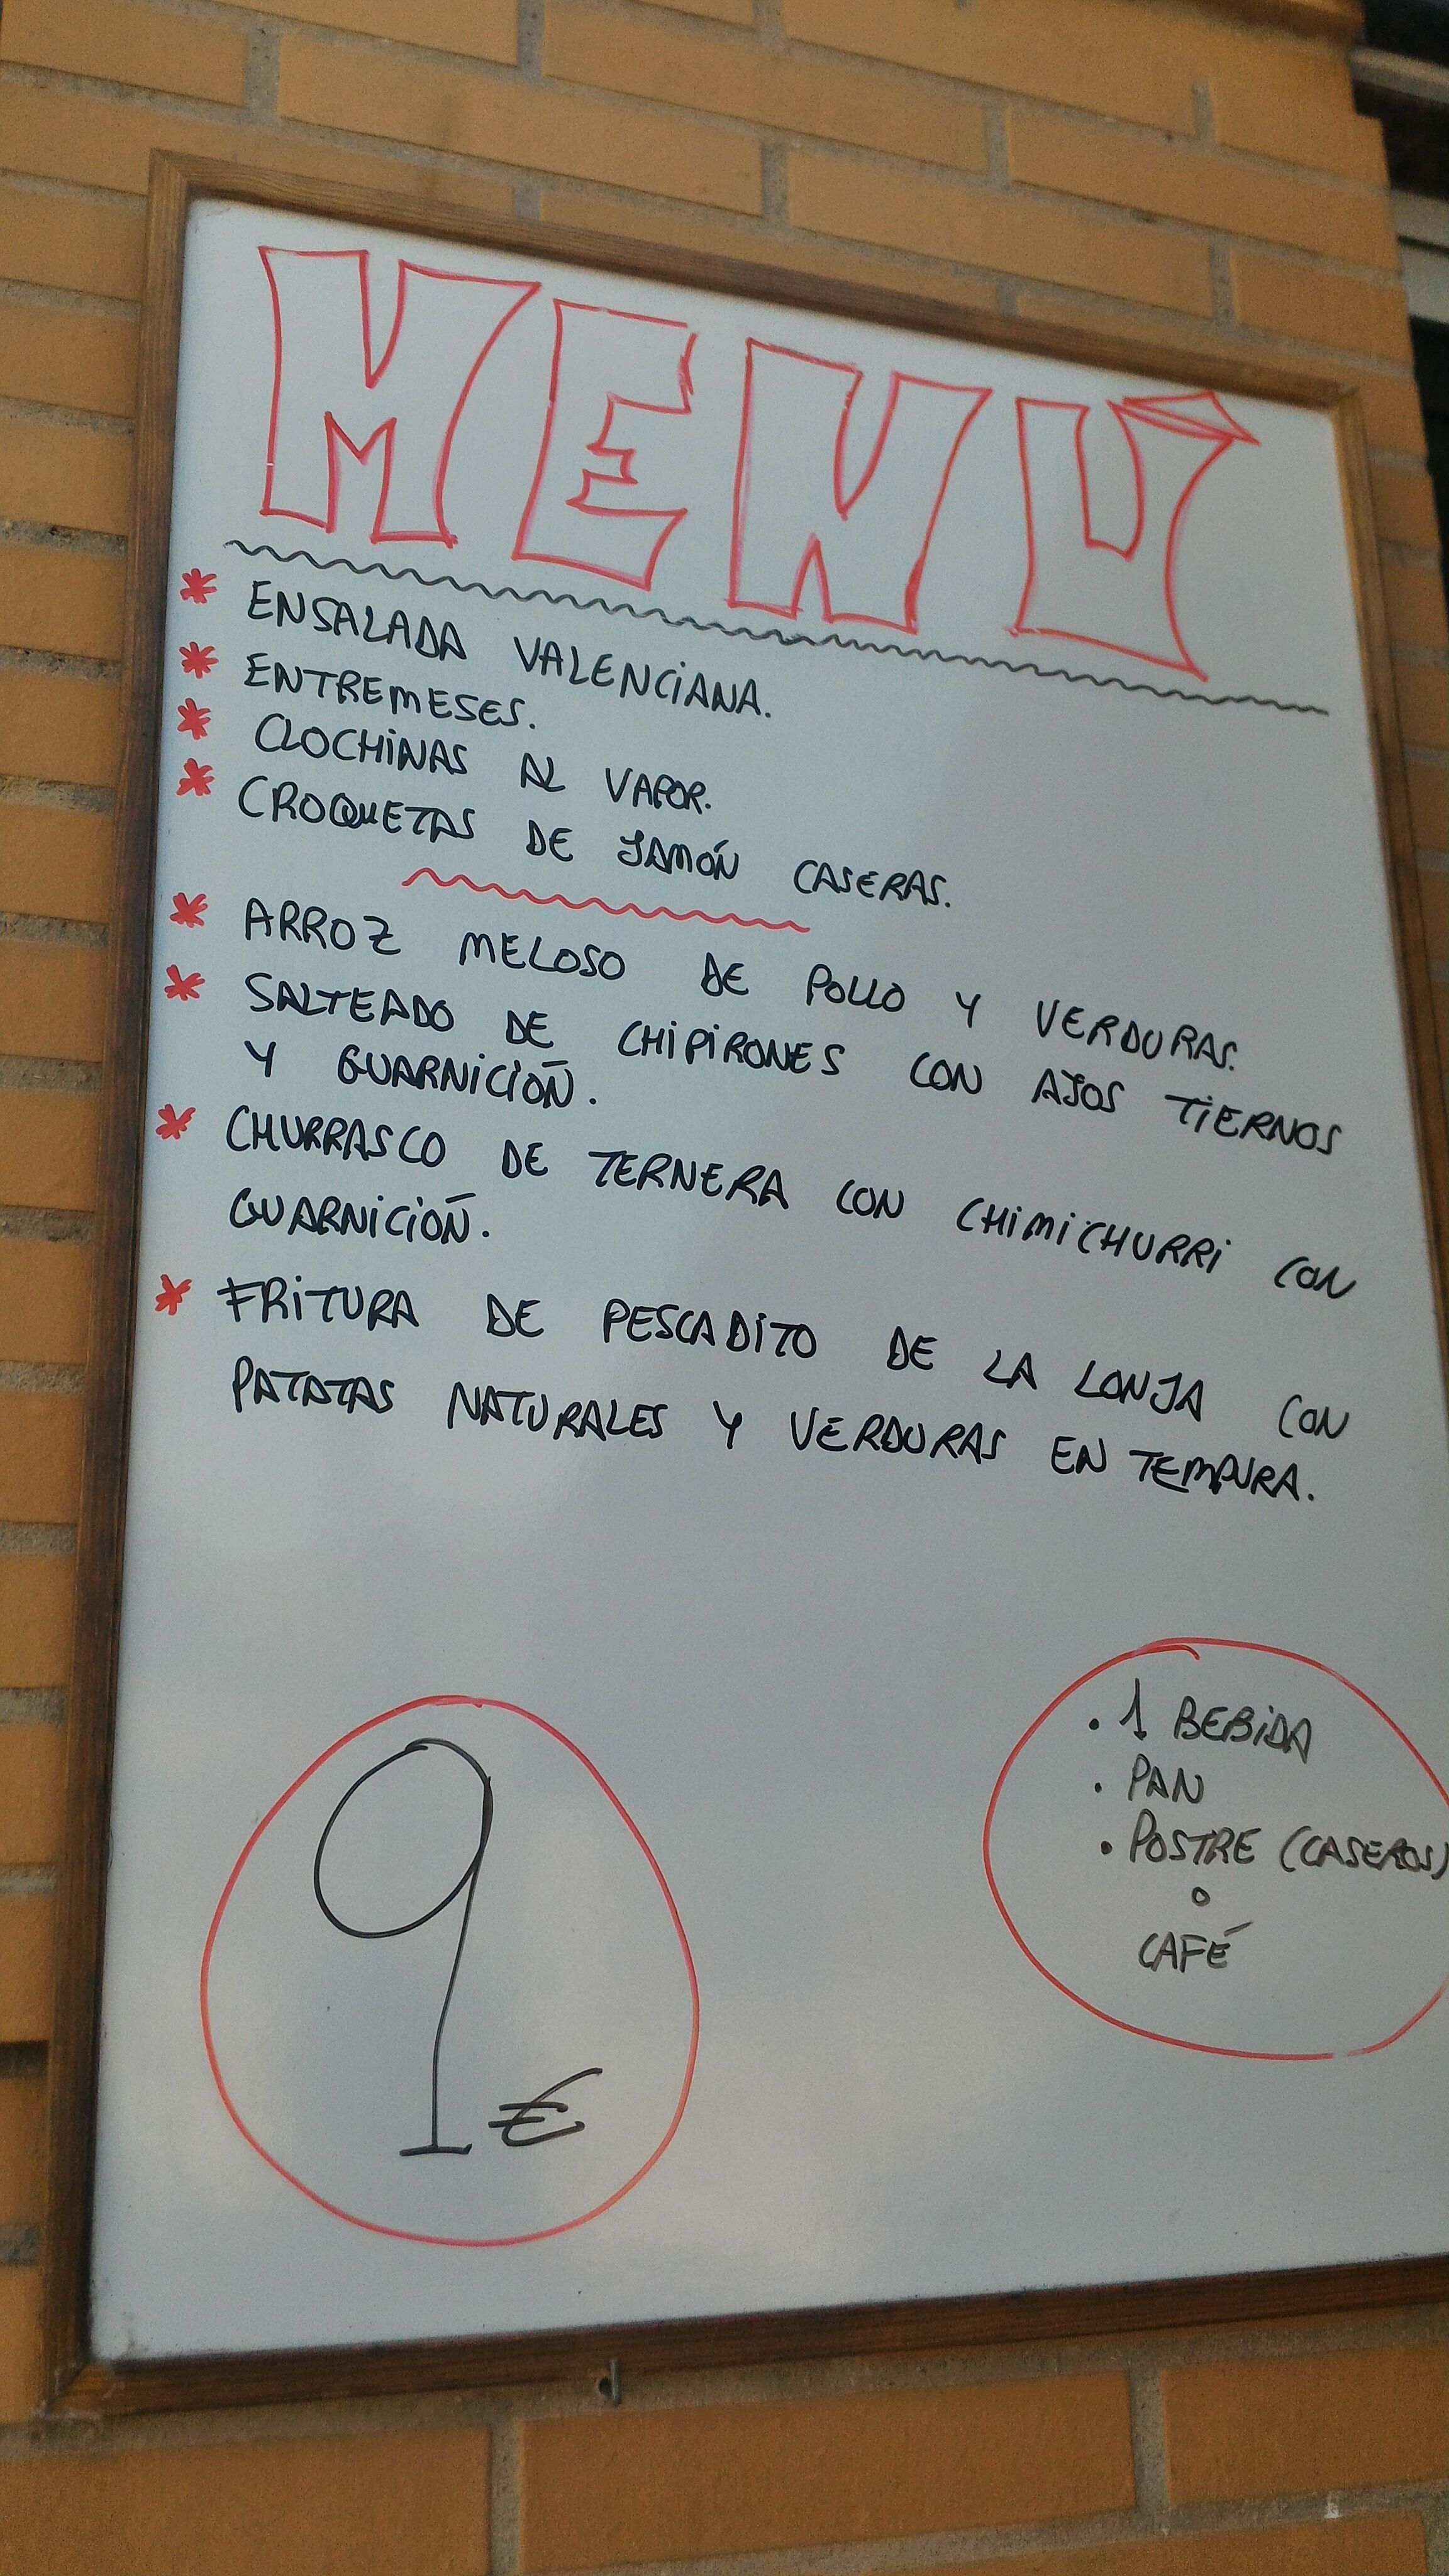 MENÚ
* ENSALADA VALENCIANA.
* ENTREMESES.
* CLOCHINAS AL VAPOR.
* CROQUETAS DE JAMÓN CASERAS.
* ARROZ MELOSO DE POLLO Y VERDURAS.
* SALTEADO DE CHIPIRONES CON AJOS TIERNOS
Y GUARNICIÓN.
* CHURRASCO DE TERNERA CON CHIMICHURRI CON
GUARNICIÓN.
* FRITURA DE PESCADITO DE LA LONJA CON
PATATAS NATURALES Y VERDURAS EN TEMPURA.
9 €
• 1 BEBIDA
• PAN
• POSTRE (CASEROS)
o
CAFÉ